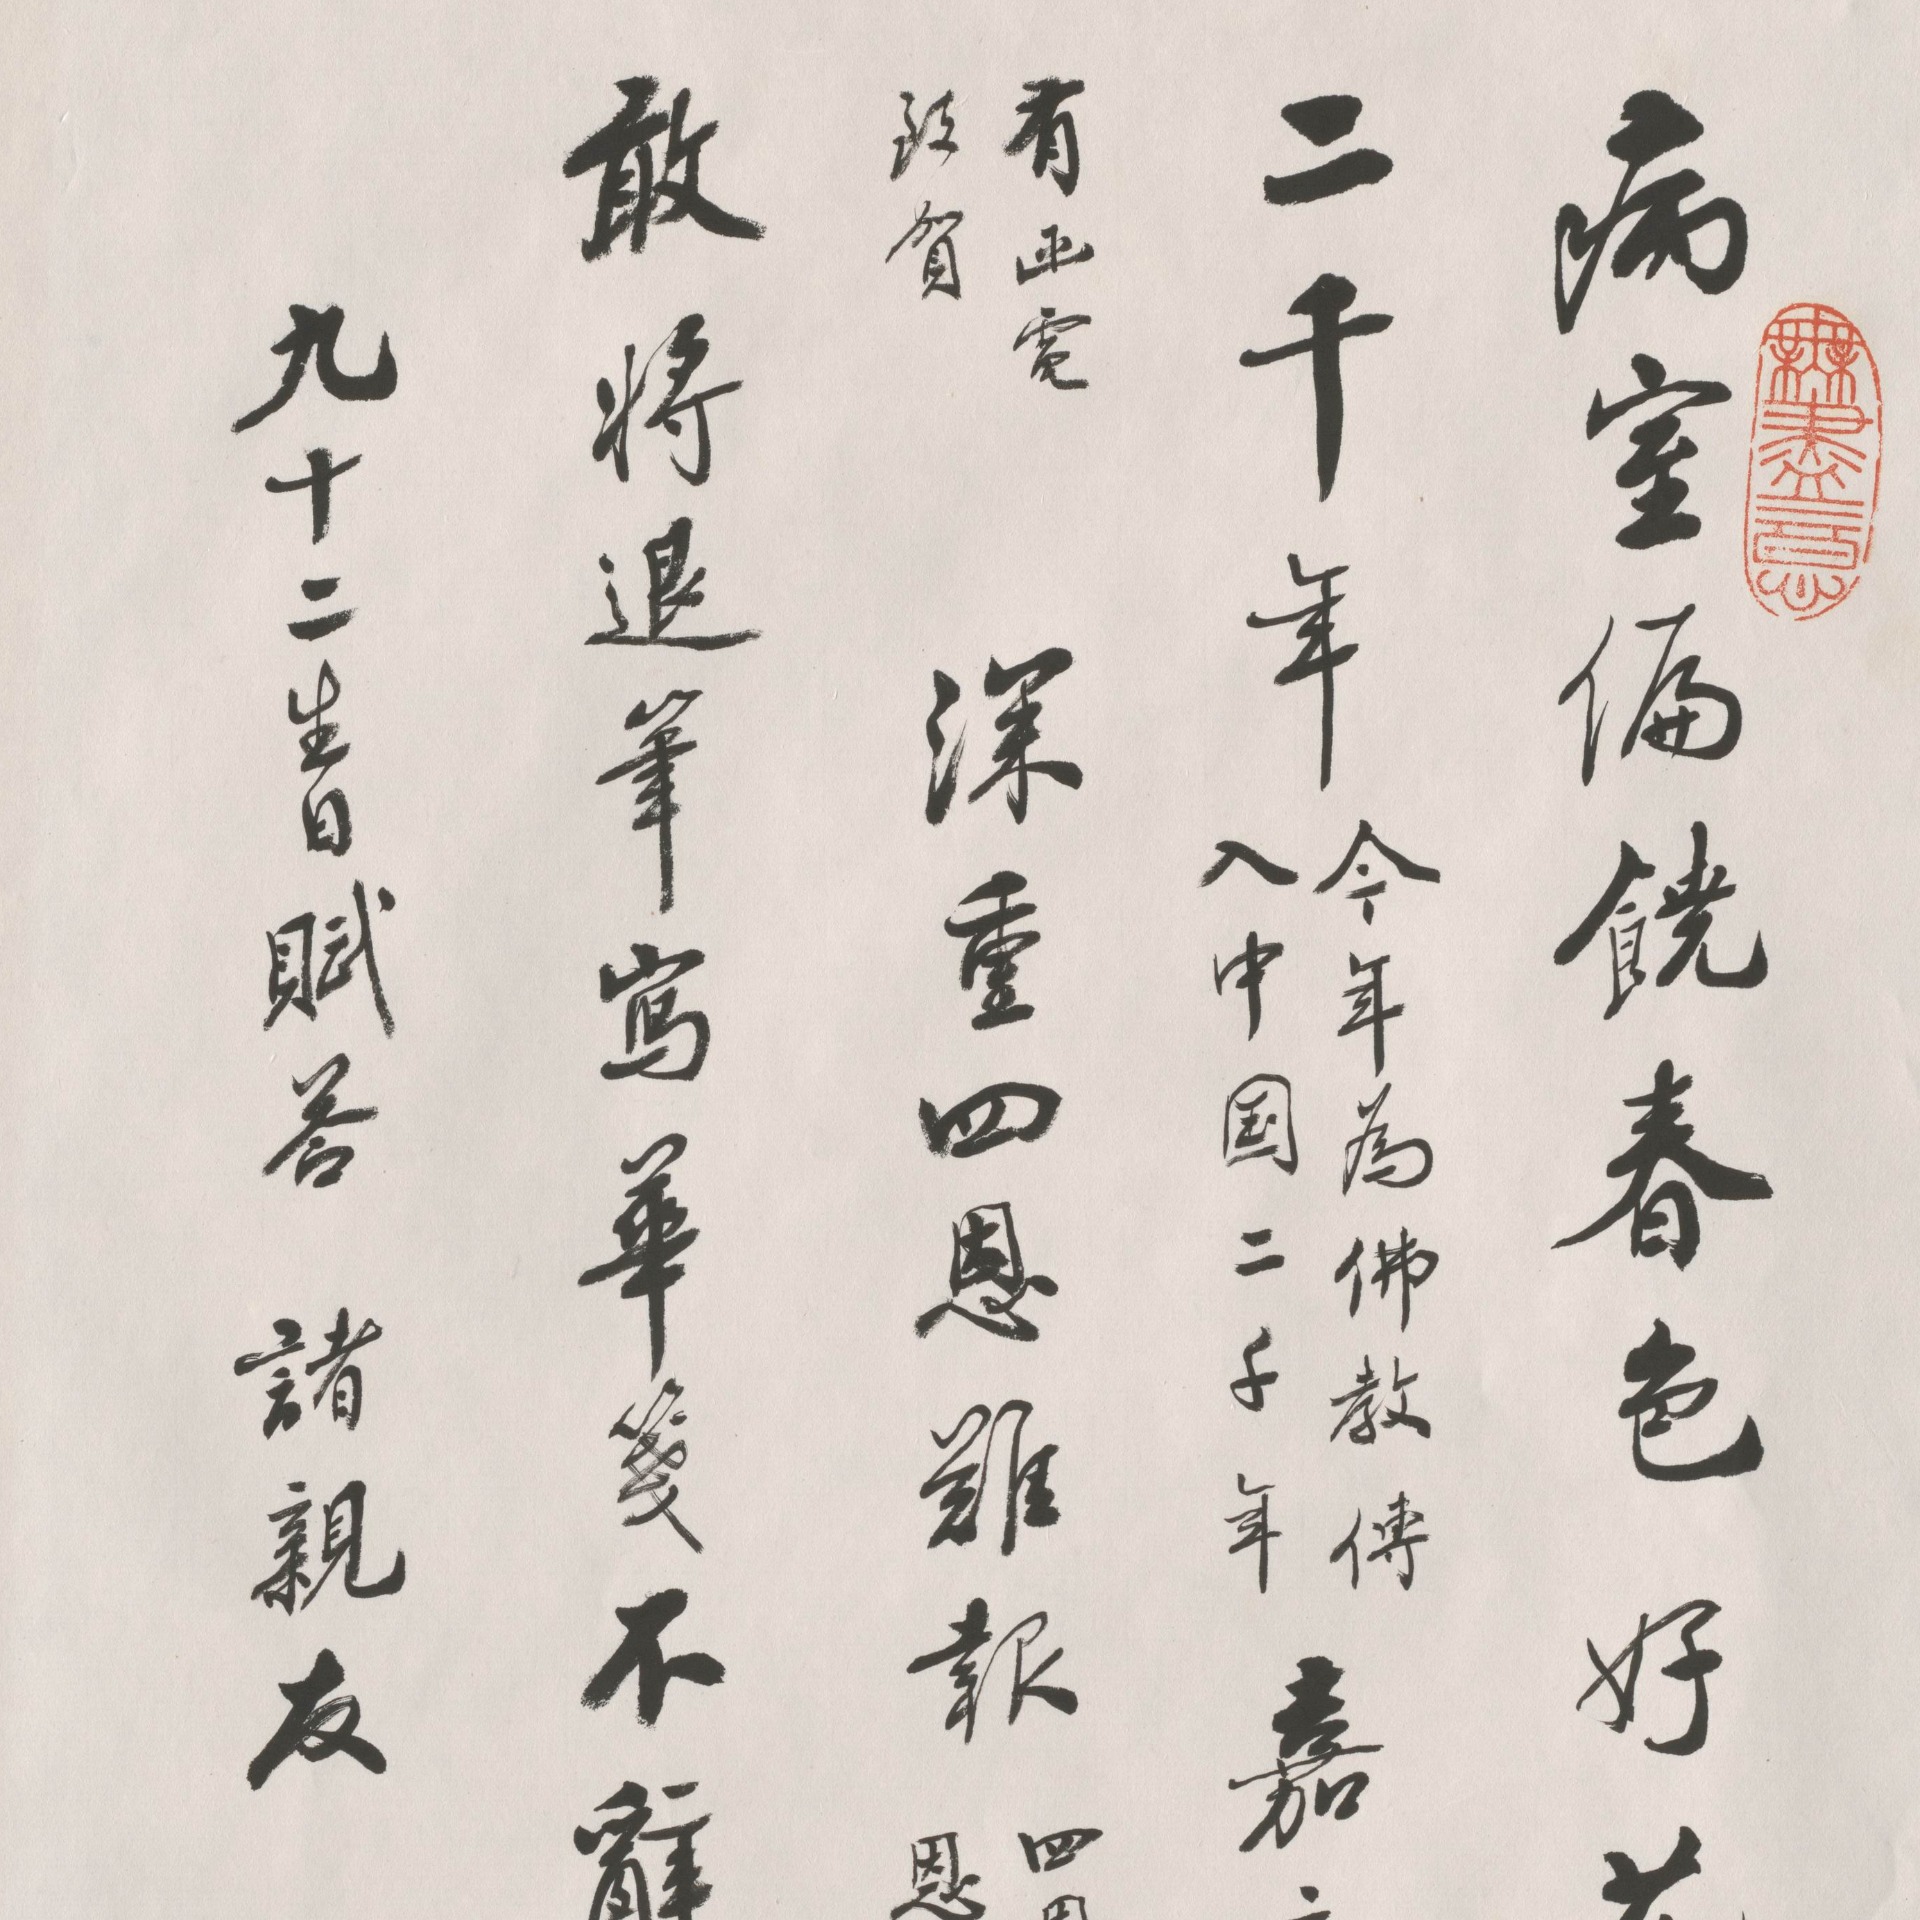 病室偏饒春色好花
二千年
今年為佛教傳
入中国二千年
嘉
有函電
致賀
深重四恩難報
四恩
恩
敢將退筆寫華箋不辭
九十二生日賦答 諸親友
無盡意